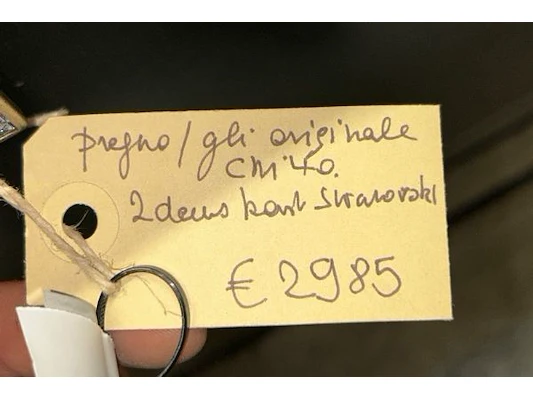 pregno/gli originale
cm 40.
2 deus kant Swarovski
€ 2985